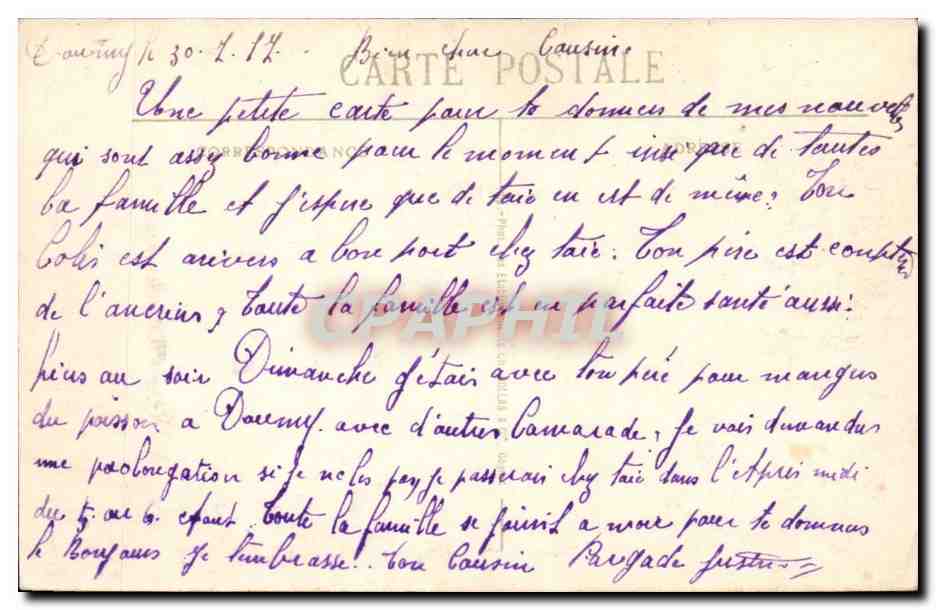 le 30.7.17. Bien cher Cousin
CARTE POSTALE
Une petite carte pour te donners de mes nouvelles
CORRESPONDANCE ADRESSE
qui sont assez bonne pour le moment insi que de toutes
La famille et j'espere que de toie en est de même. Ton
Colis est arivers a bon port chez toie. Ton père est contend
de l'ancriers, Toute la famille est en parfaite santé aussi.
au soir Dimanche j'étais avec ton père pour mangers
du poisson a avec d'autres Camarade, Je vais demanders
une prolongation si je ne les pas, je passerais chez toie dans l'Après midi
du 5. au 6. Toute la famille se joint a moie pour te donners
le Bonjours Je t'embrasse.. Ton Cousin Pargade
CPAPHIL